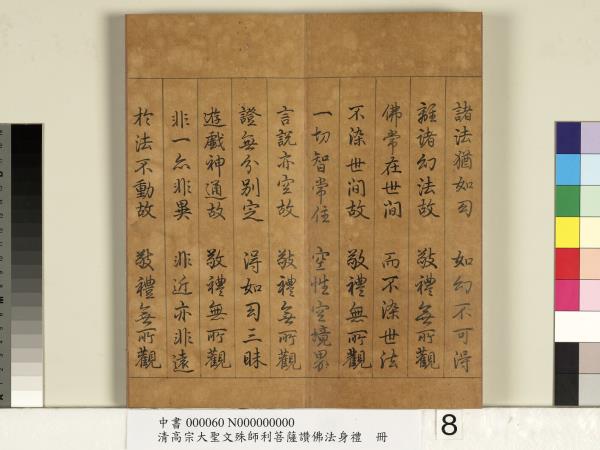 諸法猶如幻 如幻不可得
離諸幻法故 敬禮無所觀
佛常在世間 而不染世法
不染世間故 敬禮無所觀
一切智常住 空性空境界
言說亦空故 敬禮無所觀
證無分別定 得如幻三昧
遊戲神通故 敬禮無所觀
非一亦非異 非近亦非遠
於法不動故 敬禮無所觀
中書 000060 N000000000
清高宗大聖文殊師利菩薩讚佛法身禮 冊
8